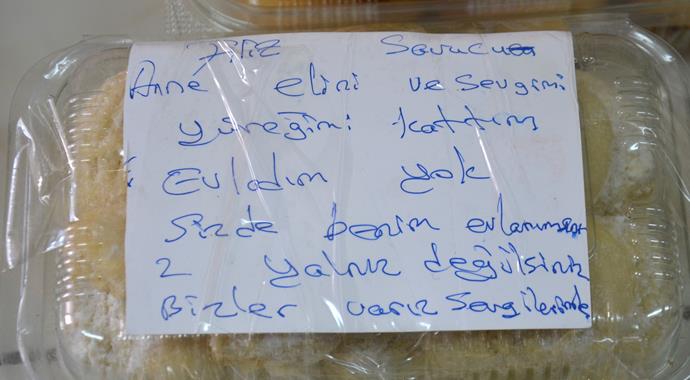 Anne elini ve sevgimi
yüreğimi kattım
Evladım yok
Sizde benim evlarımsınız
2 yalnız değilsiniz
Bizler varız Sevgilerimle